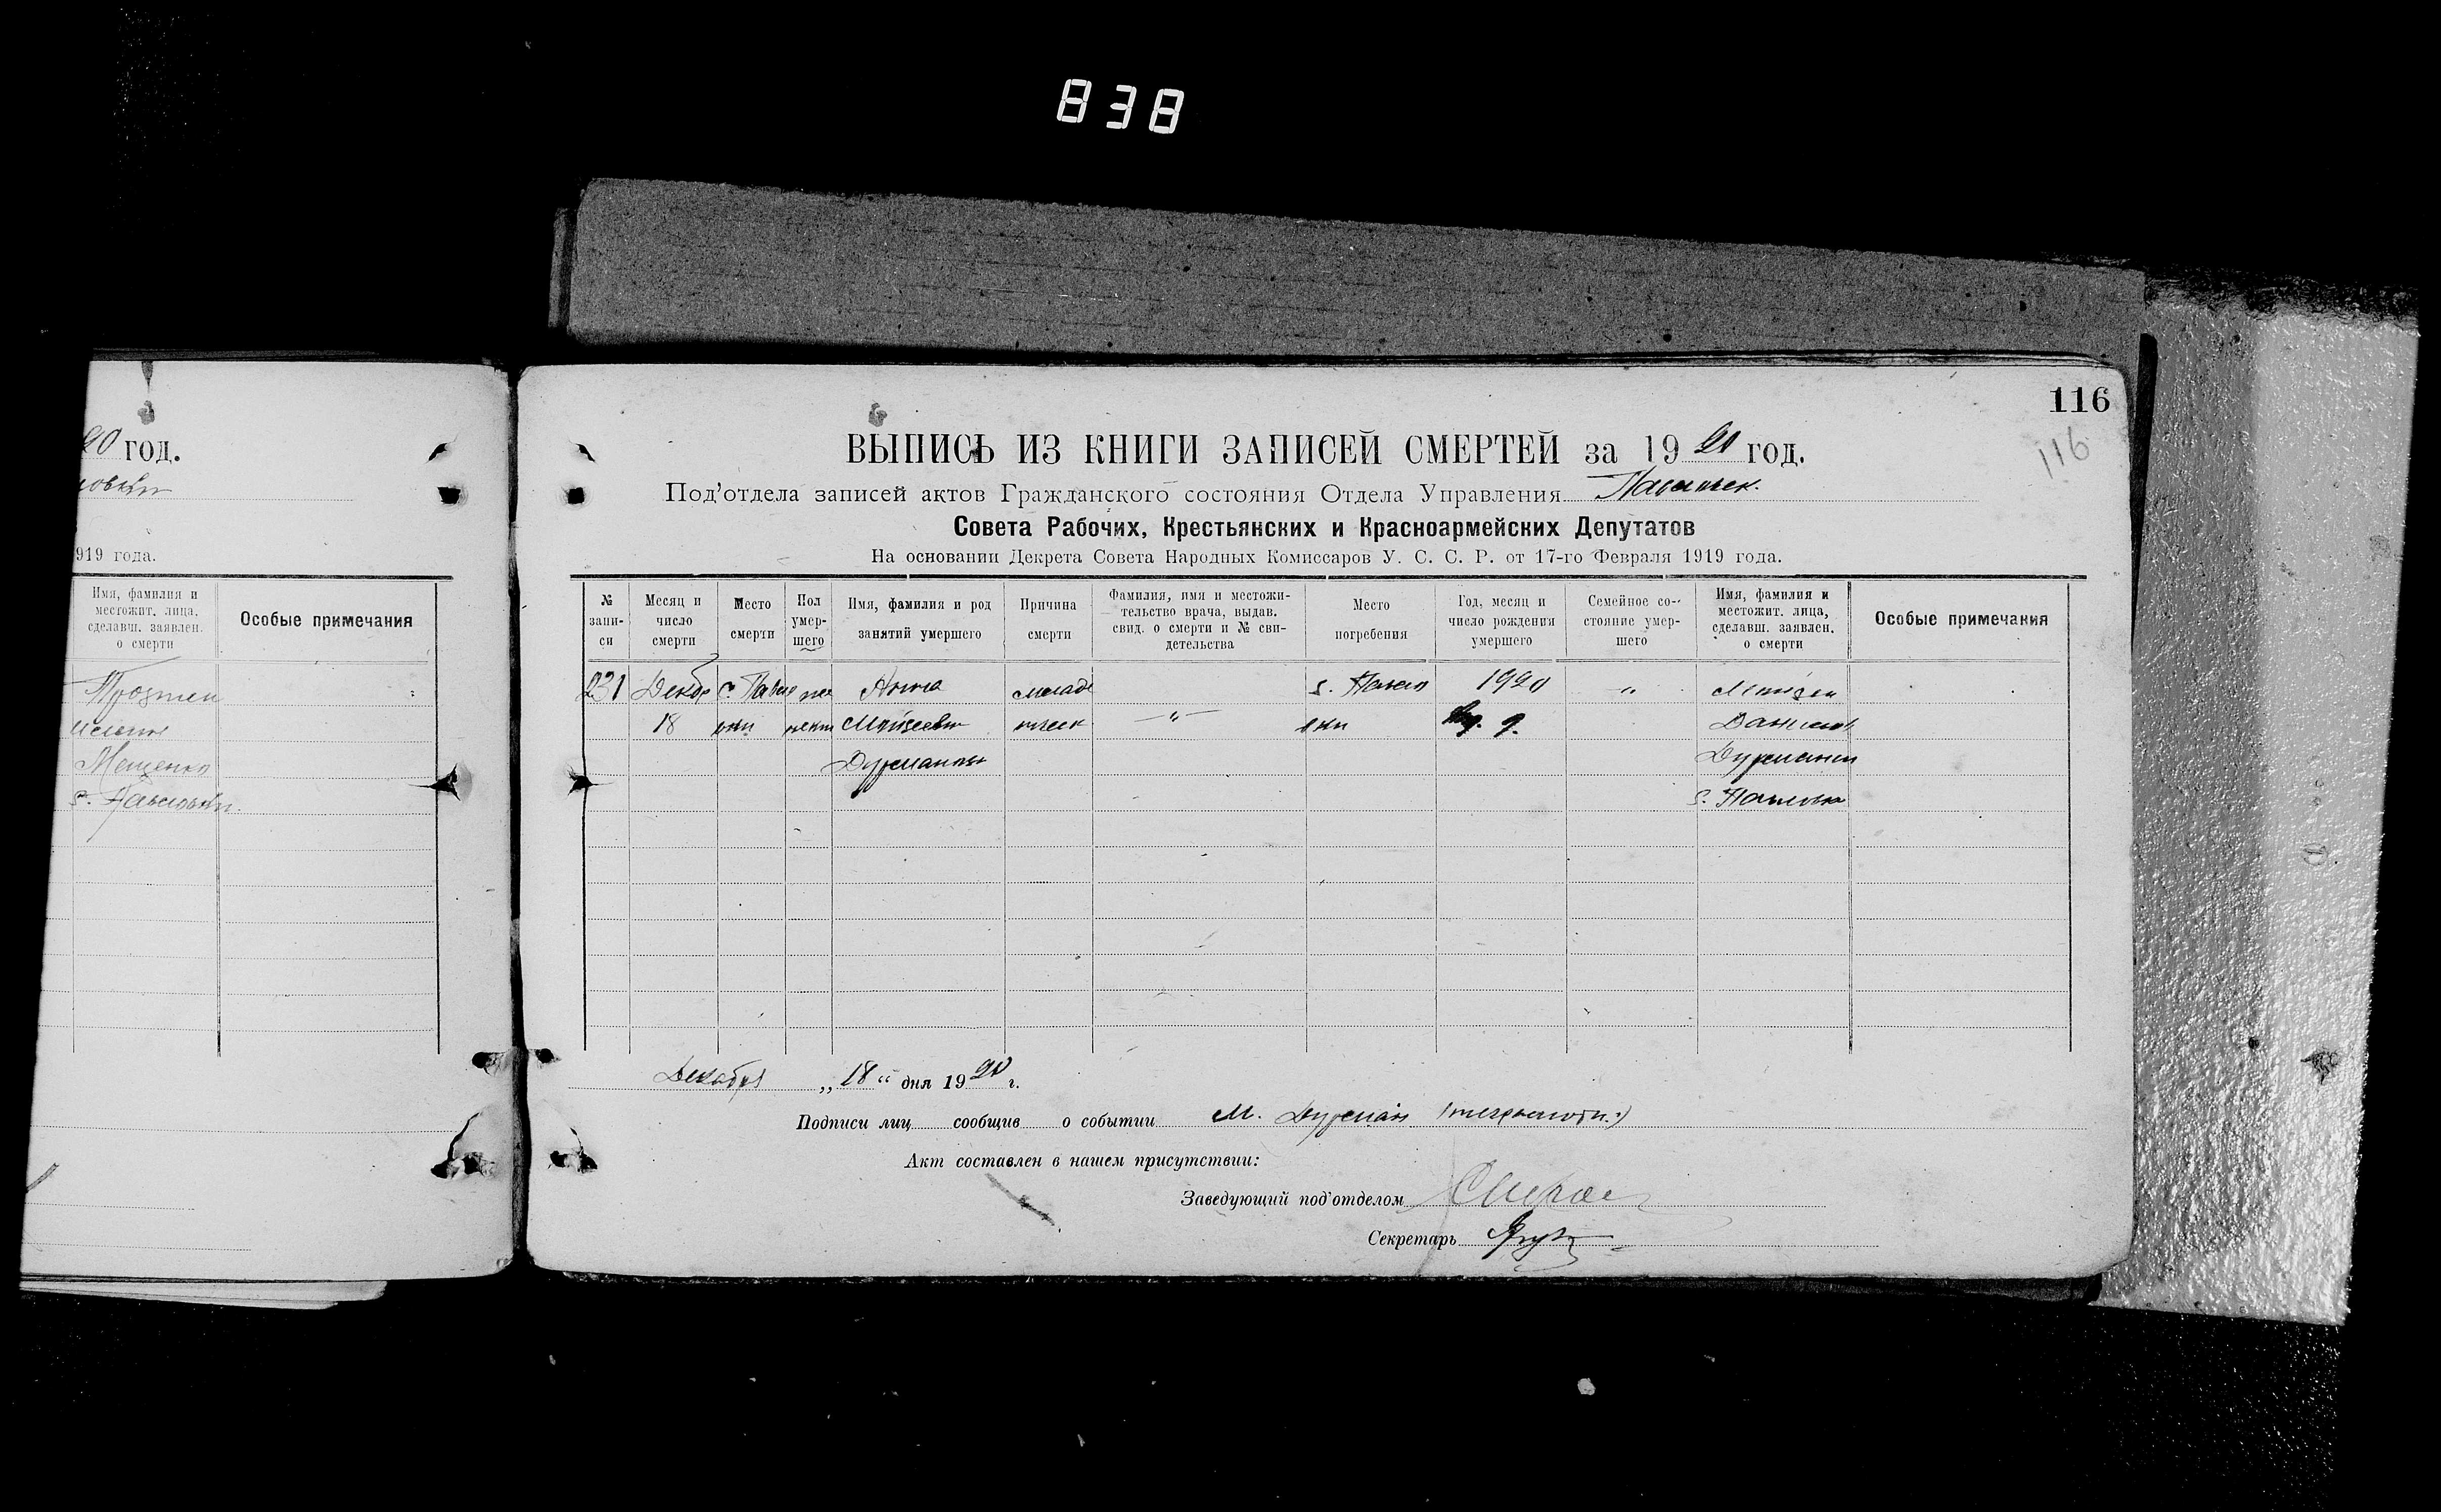 838
20 год.
919 года.
Имя, фамилия и
местожит. лица,
сделавш. заявлен.
о смерти
Особые примечания
Мещенко
с. Павловки.
116
116
ВЫПИСЬ ИЗ КНИГИ ЗАПИСЕЙ СМЕРТЕЙ за 1920 год.
Под'отдела записей актов Гражданского состояния Отдела Управления Павловск.
Совета Рабочих, Крестьянских и Красноармейских Депутатов
На основании Декрета Совета Народных Комиссаров У. С. С. Р. от 17-го Февраля 1919 года.
№ запи-си
Месяц и число смерти
Место смерти
Пол умер-шего
Имя, фамилия и род занятий умершего
Причина смерти
Фамилия, имя и местожи-тельство врача, выдав. свид. о смерти и № сви-детельства
Место погребения
Год, месяц и число рождения умершего
Семейное со-стояние умер-шего
Имя, фамилия и местожит. лица, сделавш. заявлен. о смерти
Особые примечания
231 Декбр с. Павло жен Анна младе с. Павло 1920 " Мойсей
18 вки Мойсеевн ческ — " — вки Данилов
Дурманова Дурман
с. Павловка
Декабря „ 18 “ дня 1920 г.
Подписи лиц сообщив о событии М. Дурман
Акт составлен в нашем присутствии:
Заведующий под'отделом
Секретарь